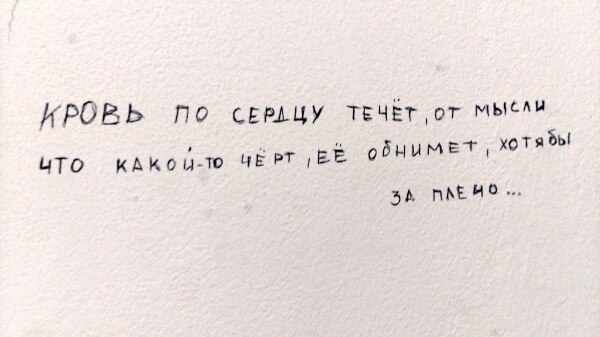 КРОВЬ ПО СЕРДЦУ ТЕЧЁТ, ОТ МЫСЛИ
ЧТО КАКОЙ-ТО ЧЁРТ, ЕЁ ОБНИМЕТ, ХОТЯБЫ
ЗА ПЛЕЧО...